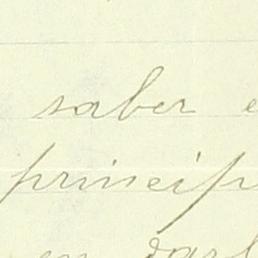 saber e
princip
en darl